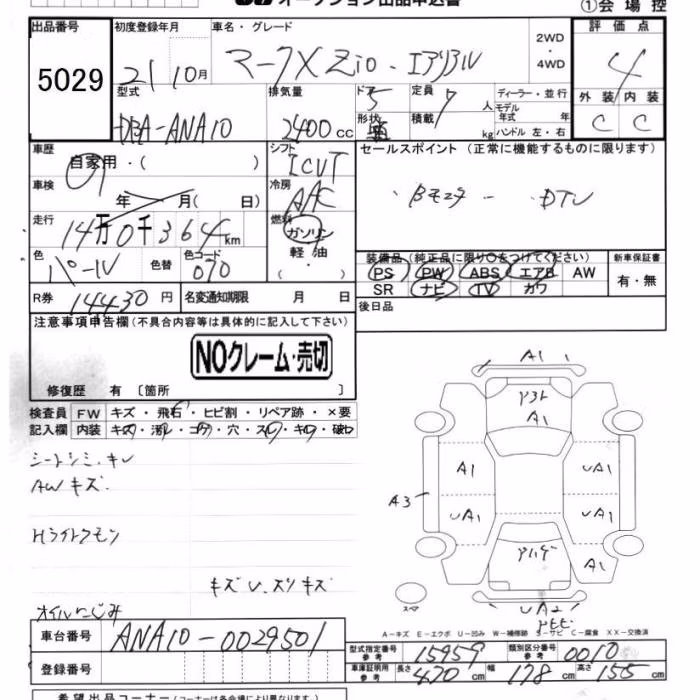 オークション出品申込書
①会場控
出品番号 初度登録年月 車名・グレード 2WD ・ 4WD 評価点
5029 21 10月 マークX Zio ・ エアリアル 4
型式 排気量 ドア 5 定員 7人 ディーラー・並行 外装 内装
DBA-ANA10 2400cc 形状 積載 kg モデル年式 年 ハンドル 左・右 C C
車歴 自家用・( ) シフト ICVT セールスポイント (正常に機能するものに限ります)
車検 年 月( 日) 冷房 A/C
走行 14万0千364km 燃料 ガソリン 軽油 ・( )
色 パール 色替 色コード 070
装備品 (純正品に限り○をつけてください) 新車保証書
PS PW ABS エアB AW 有・無
SR ナビ TV カワ
R券 14430円 名変通知期限 月 日 後日品
注意事項申告欄(不具合内容等は具体的に記入して下さい)
NOクレーム・売切
修復歴 有 〔箇所 〕
検査員 FW キズ・飛石・ヒビ割・リペア跡・×要
記入欄 内装 キズ・汚レ・コゲ・穴・スレ・キレ・破レ
シートシミ・キレ
AWキズ
Hライトクモリ
キズ U. スリキズ
オイルにじみ
A1
A1
A1 UA1
A3
UA1 UA1
A1
スペア
UA2
A-キズ E-エクボ U-凹み W-補修跡 S-サビ C-腐食 XX-交換済
車台番号 ANA10-0029501
登録番号
型式指定番号 参考 15959 類別区分番号 参考 0010
車庫証明用 参考 長さ 470cm 幅 178cm 高さ 155cm
希望出品コーナー(コーナーは各会場により異なります。)